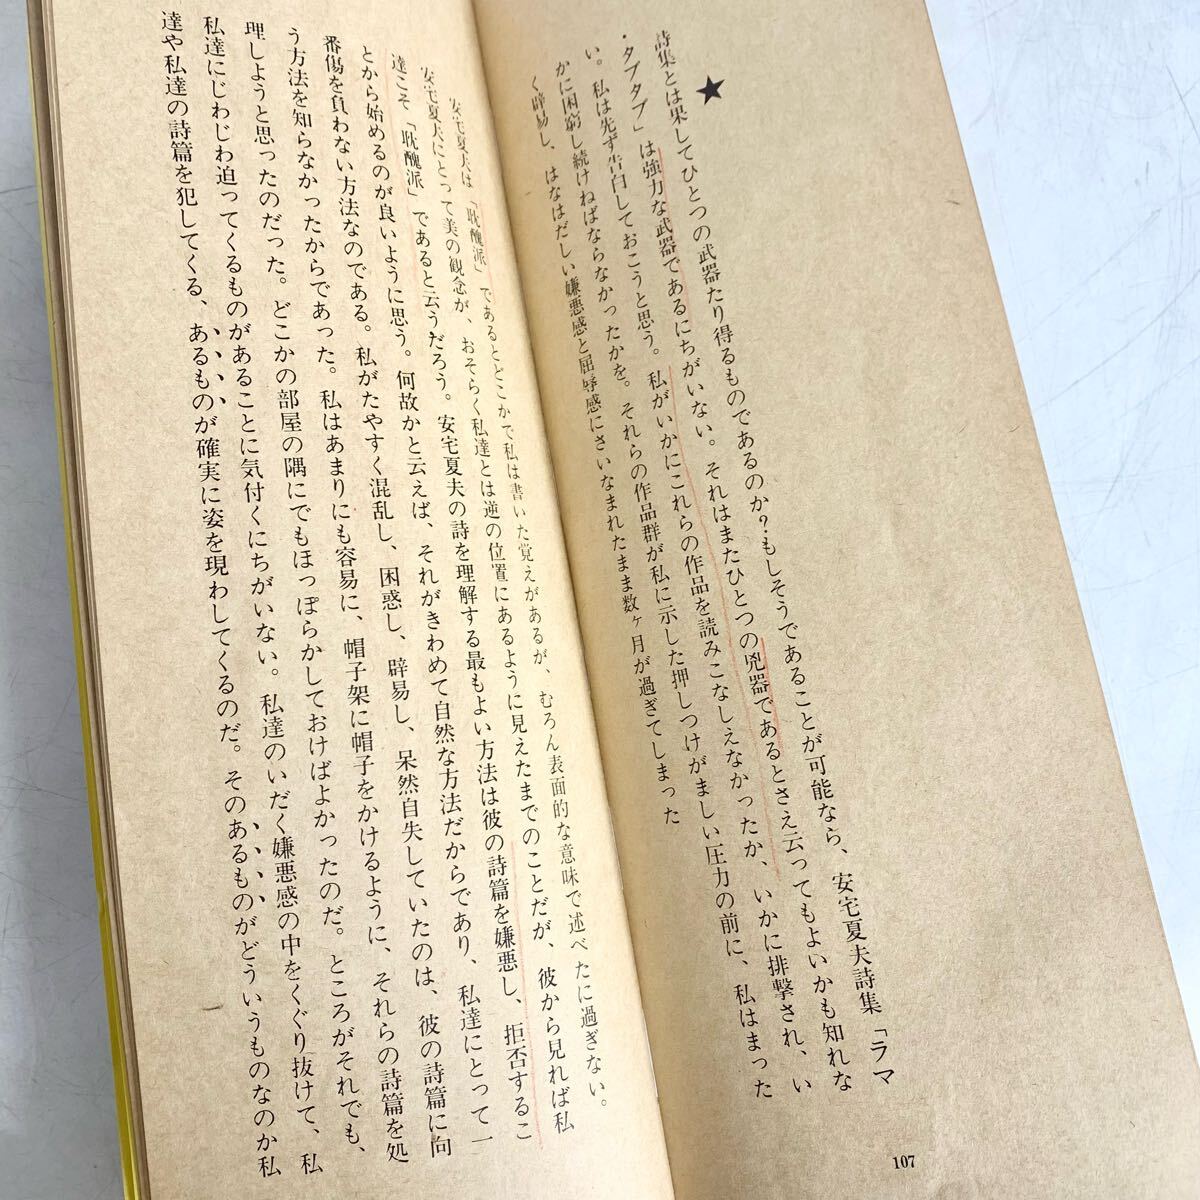 ★
詩集とは果してひとつの武器たり得るものであるのか?もしそうであることが可能なら、安宅夏夫詩集「ラマ
・タブタブ」は強力な武器であるにちがいない。それはまたひとつの兇器であるとさえ云ってもよいかも知れな
い。私は先ず告白しておこうと思う。私がいかにこれらの作品を読みこなしえなかったか、いかに排撃され、い
かに困窮し続けねばならなかったかを。それらの作品群が私に示した押しつけがましい圧力の前に、私はまった
く辟易し、はなはだしい嫌悪感と屈辱感にさいなまれたまま数ヶ月が過ぎてしまった
107
安宅夏夫は「耽醜派」であるとどこかで私は書いた覚えがあるが、むろん表面的な意味で述べたに過ぎない。
安宅夏夫にとって美の観念が、おそらく私達とは逆の位置にあるように見えたまでのことだが、彼から見れば私
達こそ「耽醜派」であると云うだろう。安宅夏夫の詩を理解する最もよい方法は彼の詩篇を嫌悪し、拒否するこ
とから始めるのが良いように思う。何故かと云えば、それがきわめて自然な方法だからであり、私達にとって一
番傷を負わない方法なのである。私がたやすく混乱し、困惑し、辟易し、呆然自失していたのは、彼の詩篇に向
う方法を知らなかったからであった。私はあまりにも容易に、帽子架に帽子をかけるように、それらの詩篇を処
理しようと思ったのだった。どこかの部屋の隅にでもほっぽらかしておけばよかったのだ。ところがそれでも、
私達にじわじわ迫ってくるものがあることに気付くにちがいない。私達のいだく嫌悪感の中をくぐり抜けて、私
達や私達の詩篇を犯してくる、あるものが確実に姿を現わしてくるのだ。そのあるものがどういうものなのか私